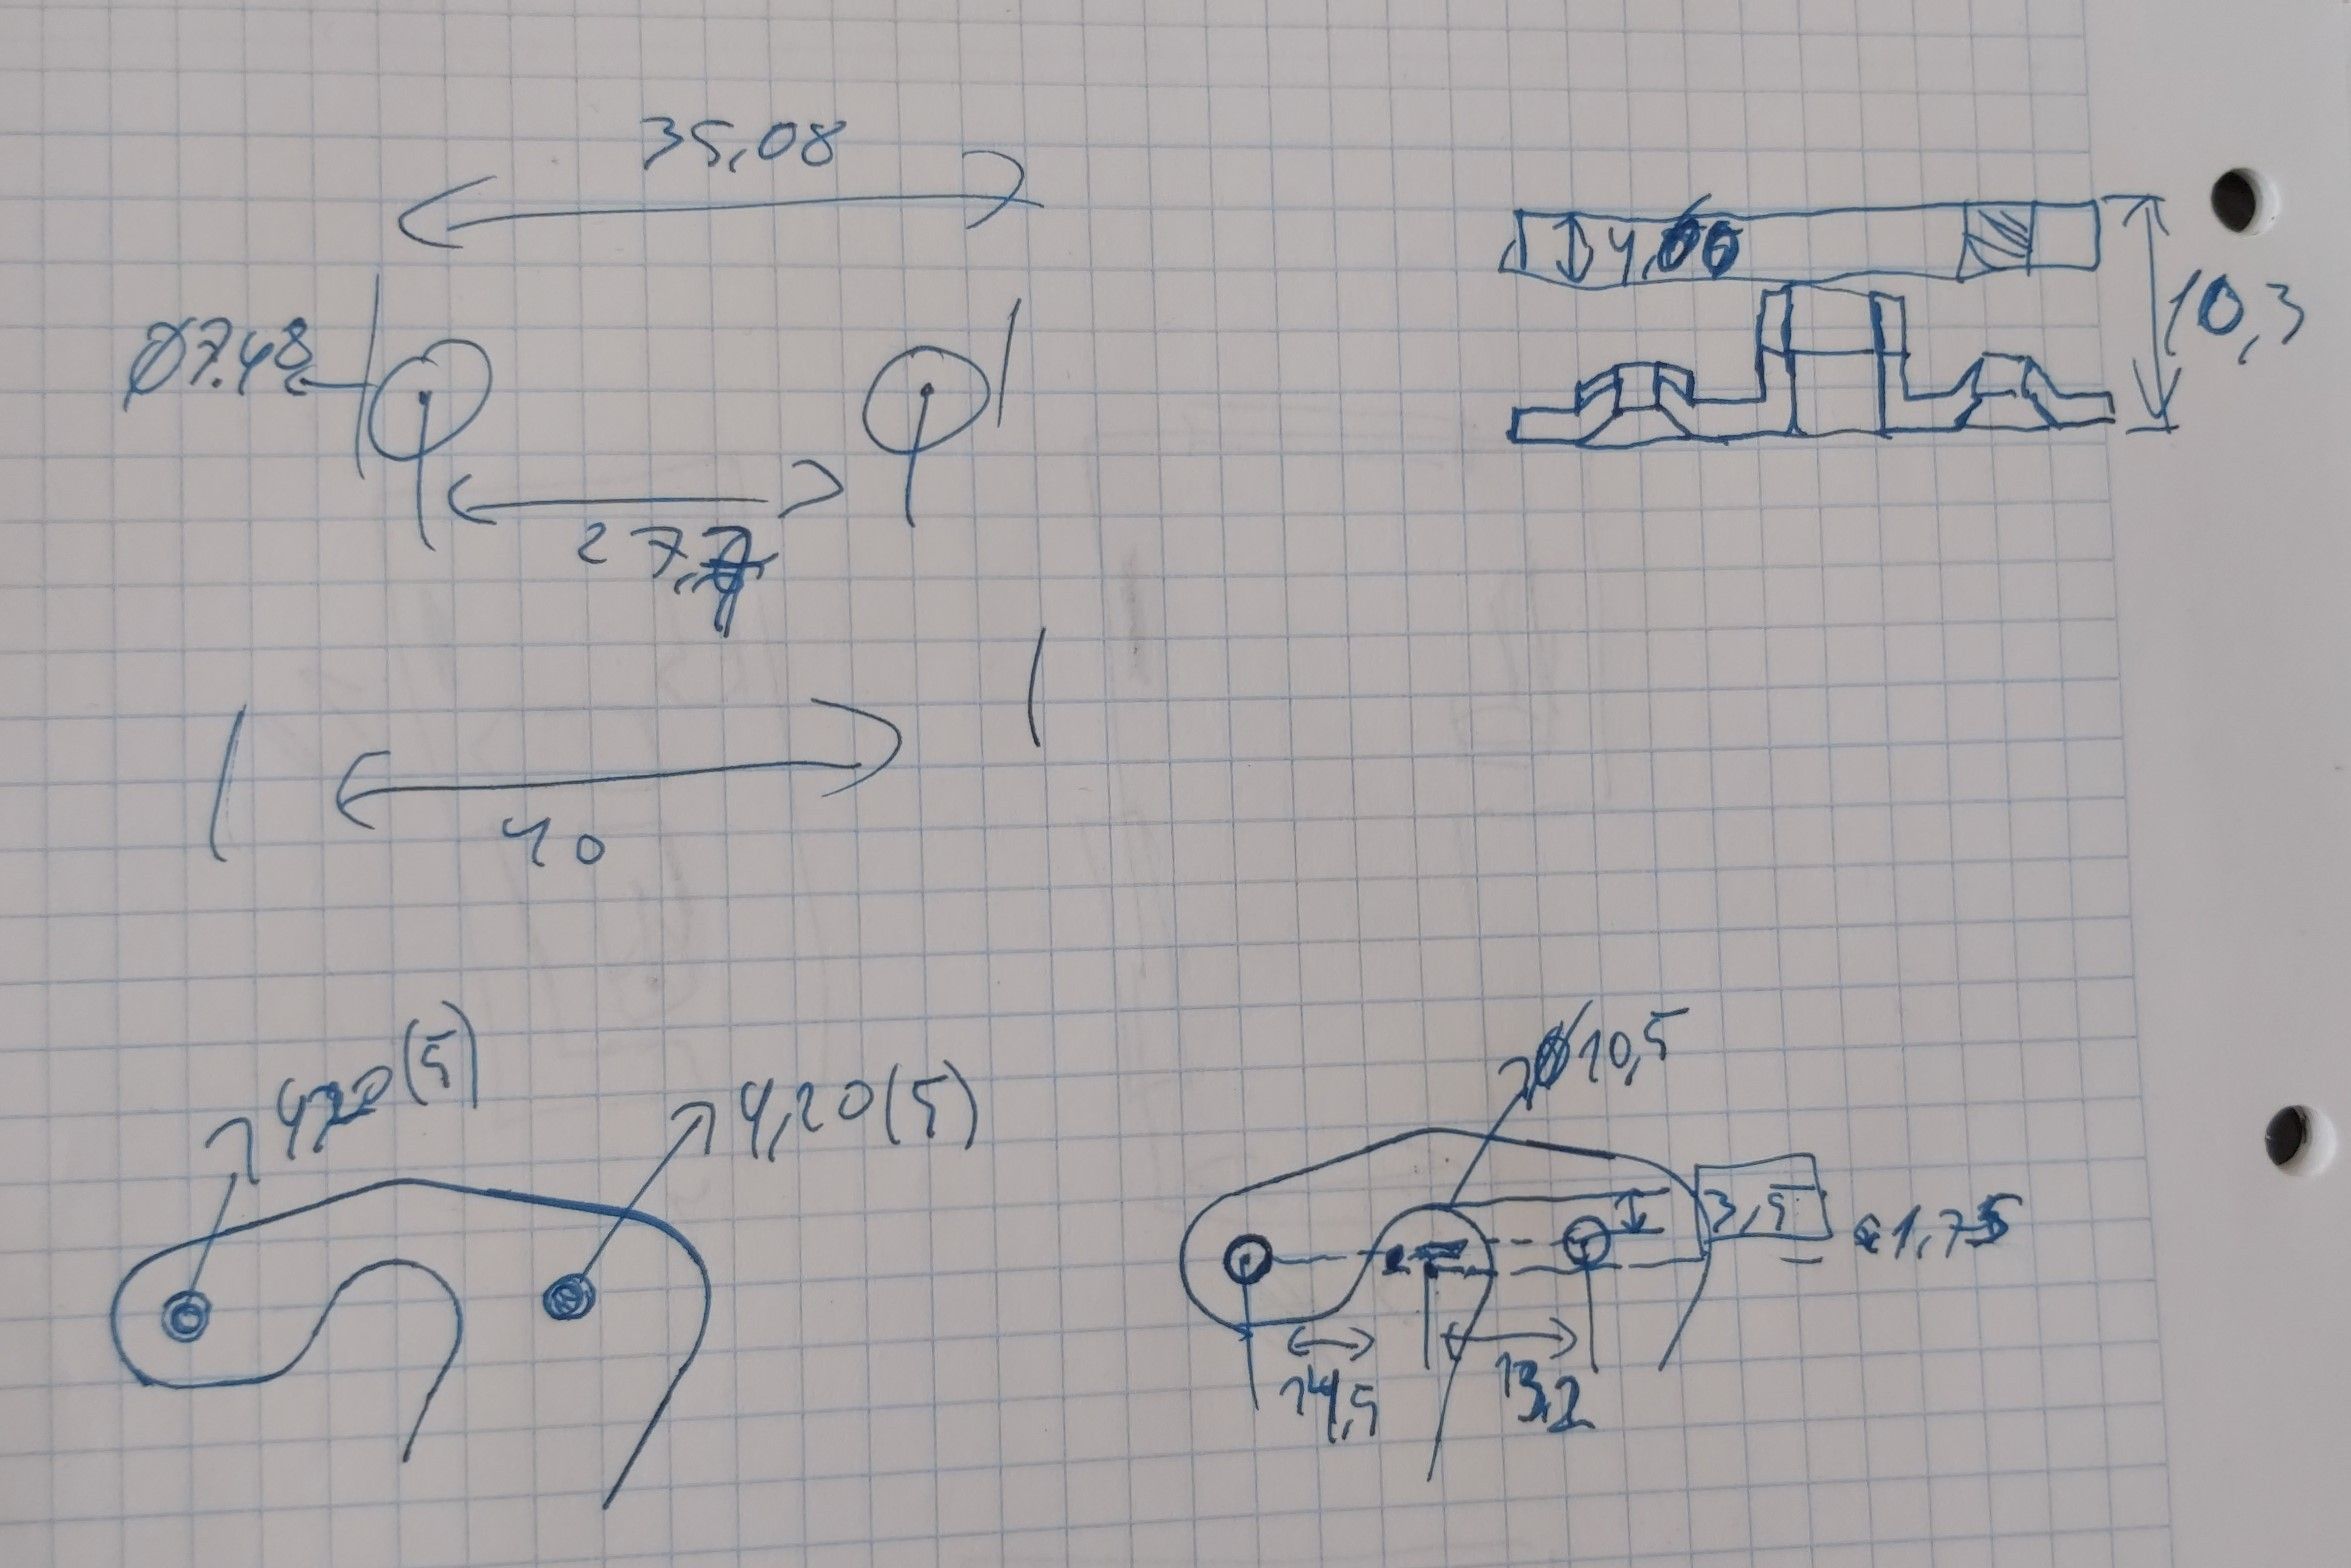 35,08
Ø7.48
27,7
40
4,00
10,3
4,20(5)
4,20(5)
Ø10,5
3,5
1,75
14,5
13,2